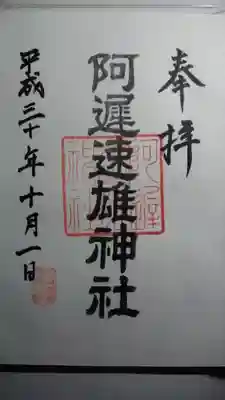 奉拝
阿遅速雄神社
平成三十年十月一日